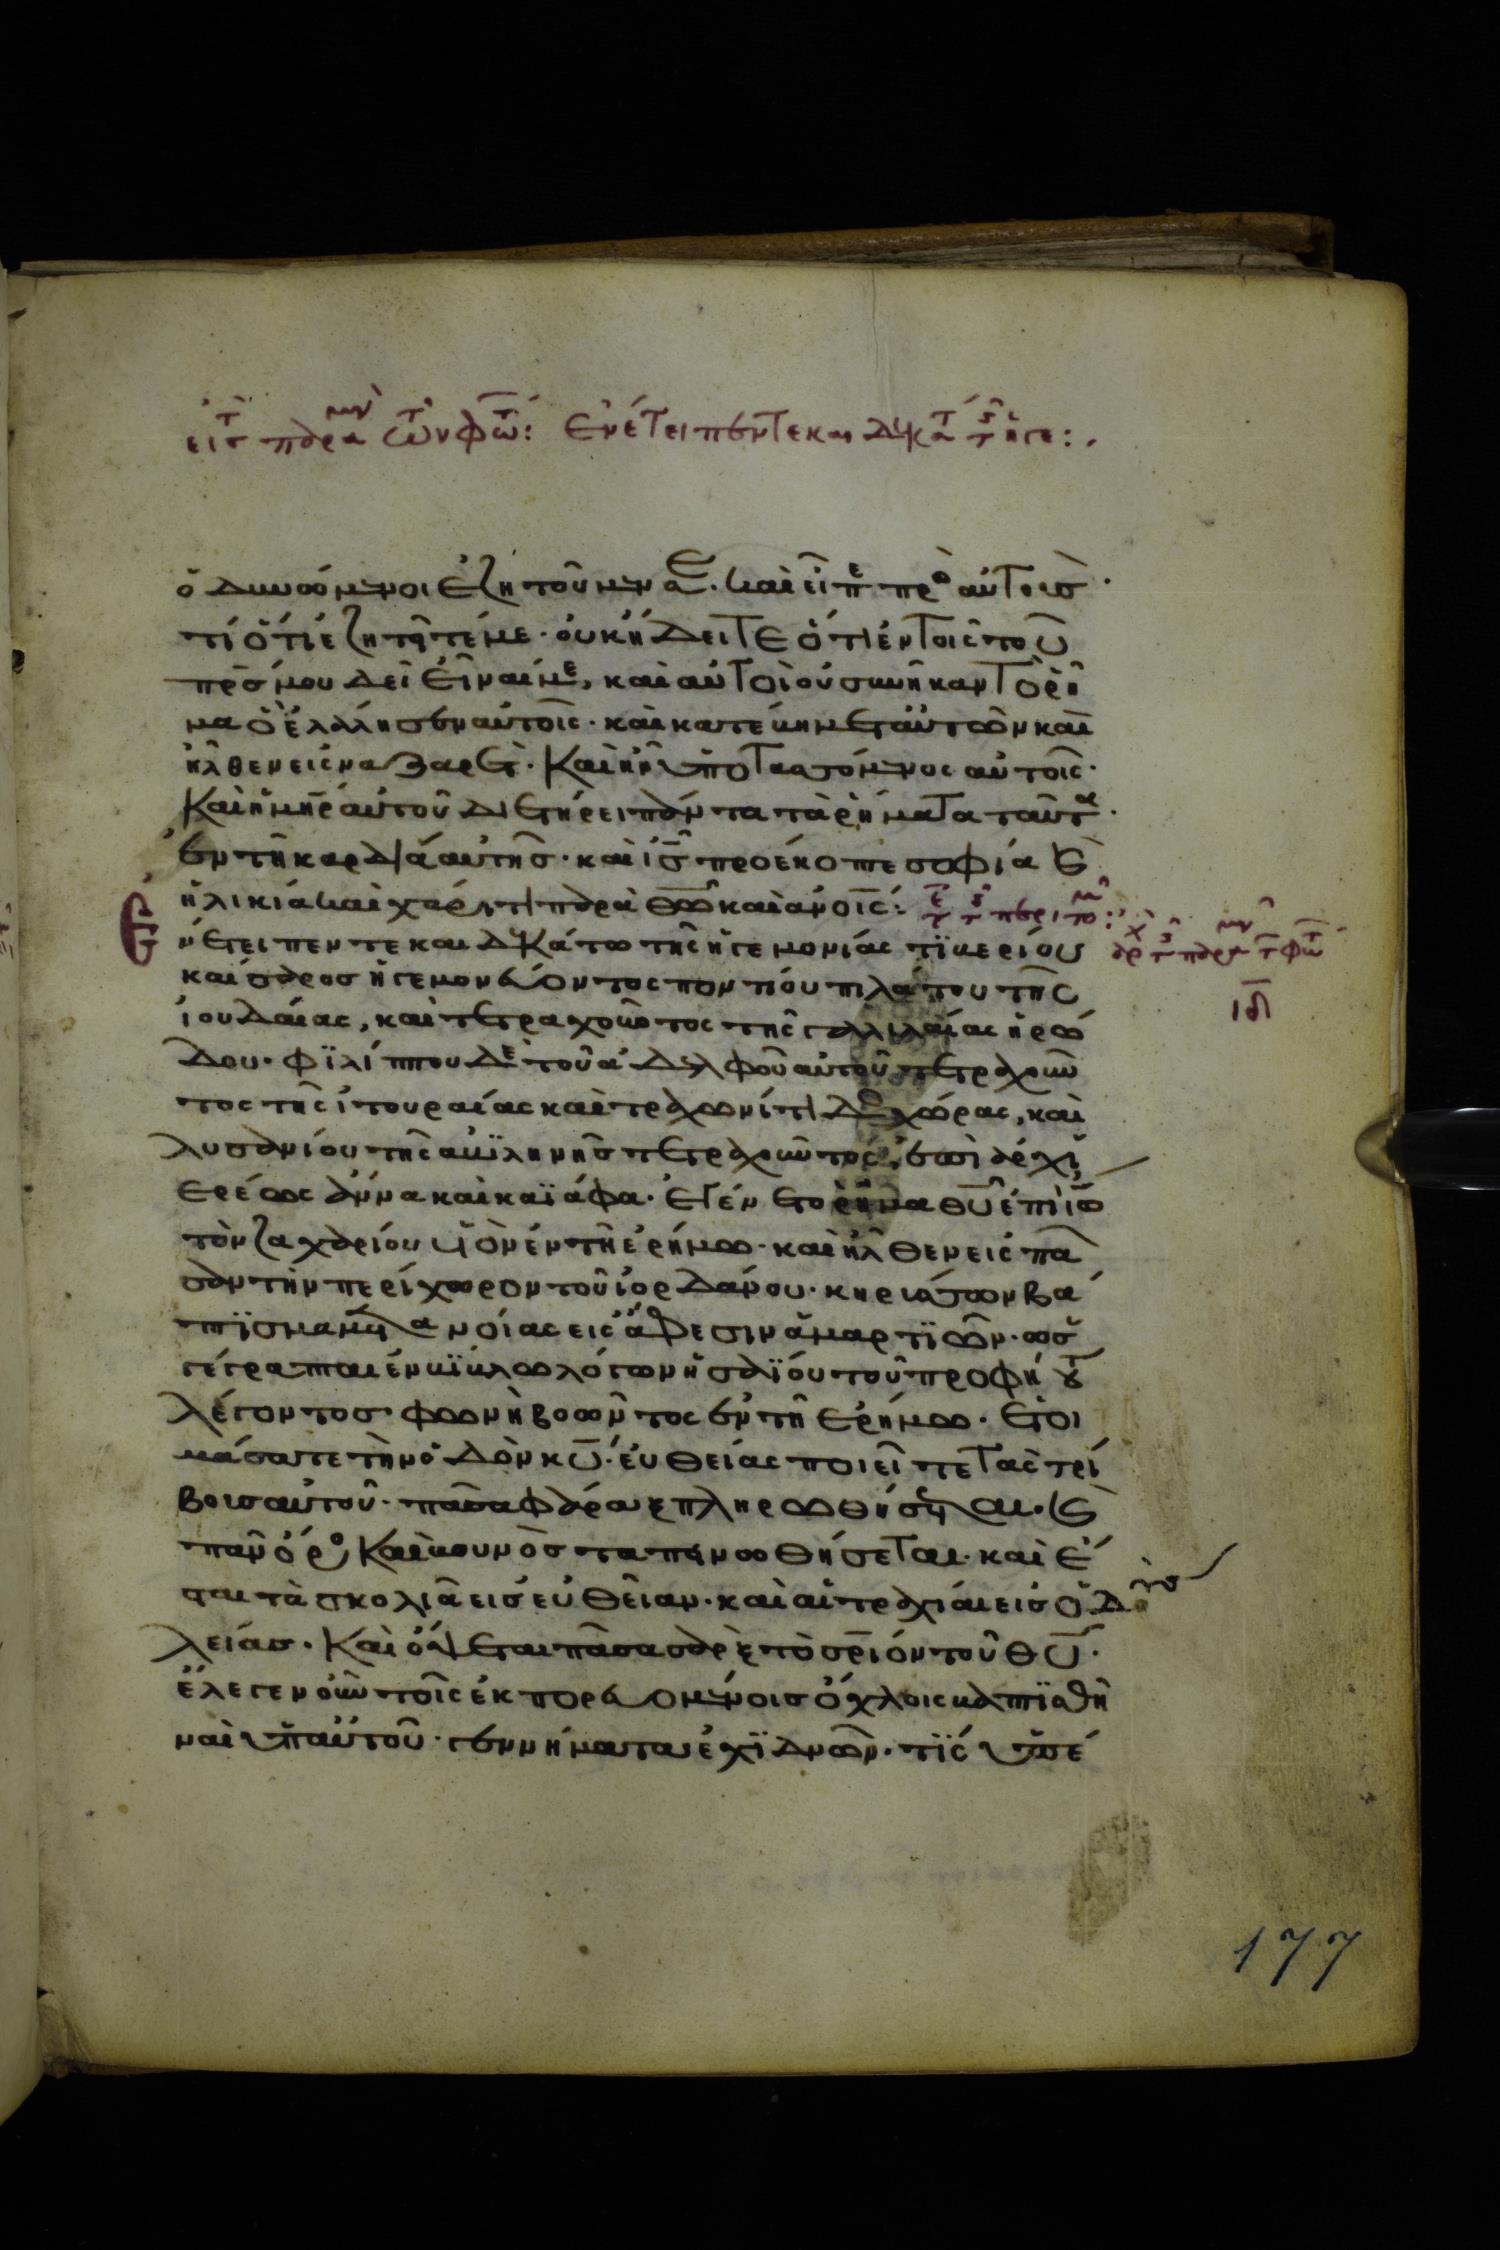 εἰς τ παρα μον τῶν φώτ: Ἐν ἔτει πεντεκαιδεκάτ τ ἡγε:
ὀδυνόμενοι ἐζητοῦμεν σε. καὶ εἶπε πρὸ αὐτούς.
τί ὅτι ἐζητῆτέ με. οὐκ ἤδειτε ὅτι ἐν τοῖς τοῦ
πρσ μου δεῖ εἶναί με, καὶ αὐτοὶ οὐ συνῆκαν τὸ ρῆ
μα ὃ ἐλάλησεν αὐτοῖς. καὶ κατέβη μετ αὐτῶν καὶ
ἦλθεν εἰς ναζαρετ. Καὶ ἦν ὑποτασσόμενος αὐτοῖς.
Καὶ ἡ μηρ αὐτοῦ διετήρει πάντα τὰ ρήματα ταῦτα.
ἐν τῆ καρδία αὐτῆς. καὶ ισ προέκοπτε σοφία καὶ
ἡλικία καὶ χάριτι παρὰ θω καὶ ανοις: τε τ περιτο:
Ἐν ἔτει πεντεκαιδεκάτω τῆς ἡγεμονίας τϊβερίου
αρχ τ παρα μον τ φώτ
ιδ
καίσαρος ἡγεμονεύοντος ποντίου πιλάτου τῆς
ἰουδαίας, καὶ τετραρχοῦντος τῆς γαλιλαίας ἡρώ
δου. φϊλίππου δὲ τοῦ ἀδελφοῦ αὐτοῦ τετραρχοῦν
τος τῆς ἰτουραίας καὶ τραχωνίτιδος χώρας, καὶ
λυσανίου τῆς αβϊληνῆς τετραρχοῦντος, ἐπὶ ἀρχι
ερέως ἄννα καὶ καϊάφα. ἐγένετο ρῆμα θυ ἐπὶ ιω
τὸν ζαχαρίου υἱὸν ἐν τῆ ἐρήμω. καὶ ἦλθεν εἰς πᾶ
σαν τὴν περίχωρον τοῦ ἰορδάνου. κηρύσσων βά
πτϊσμα μετανοίας εἰς ἄφεσιν ἁμαρτϊῶν. ὡς
γέγραπται ἐν βϊβλω λόγων ἡσαϊου τοῦ προφήτου
λέγοντος φωνὴ βοῶντος ἐν τῆ ἐρήμω. ἑτοι
μάσατε τὴν ὁδὸν κυ. εὐθείας ποιεῖτε τὰς τρί
βους αὐτοῦ. πᾶσα φάραγξ πληρωθήσεται. καὶ
πᾶν ὄρος Καὶ βουνὸς ταπεινωθήσεται. καὶ ἔ
σται τὰ σκολιὰ εἰς εὐθεῖαν. καὶ αἱ τραχεῖαι εἰς ὁδοὺς
λείας. Καὶ ὄψεται πᾶσα σὰρξ τὸ σριον τοῦ θυ.
ἔλεγεν οὖν τοῖς ἐκπορευομένοις ὄχλοις βαπτϊσθῆ
ναι ὑπ αὐτοῦ. γεννήματα ἐχϊδνῶν. τϊς ὑπέ
177